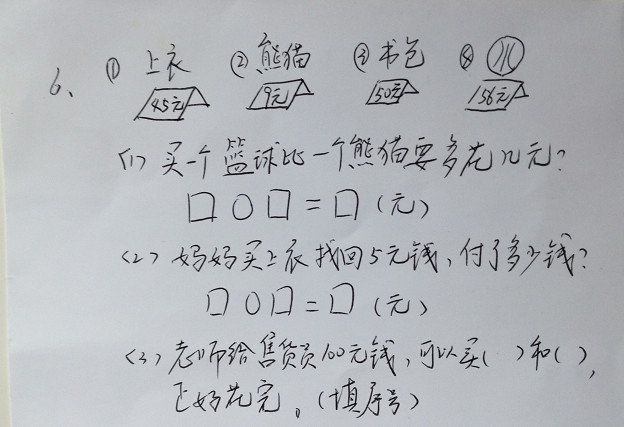 6、 ① 上衣 ② 熊猫 ③ 书包 ④
45元 9元 50元 156元
(1) 买一个篮球比一个熊猫要多花几元?
□○□=□(元)
(2) 妈妈买上衣找回5元钱,付了多少钱?
□○□=□(元)
(3) 老师给售货员100元钱,可以买( )和( ),
正好花完。(填序号)